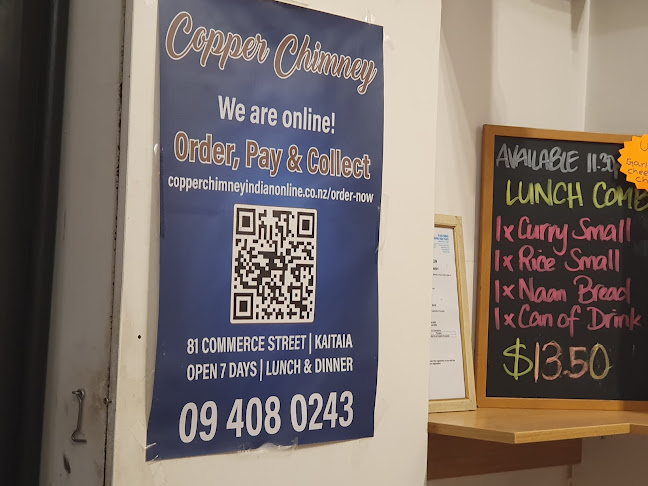 Copper Chimney
We are online!
Order, Pay & Collect
copperchimneyindianonline.co.nz/order-now
81 COMMERCE STREET | KAITAIA
OPEN 7 DAYS | LUNCH & DINNER
09 408 0243
AVAILABLE 11.30
LUNCH COM
1x Curry Small
1x Rice Small
1x Naan Bread
1x Can of Drink
$13.50